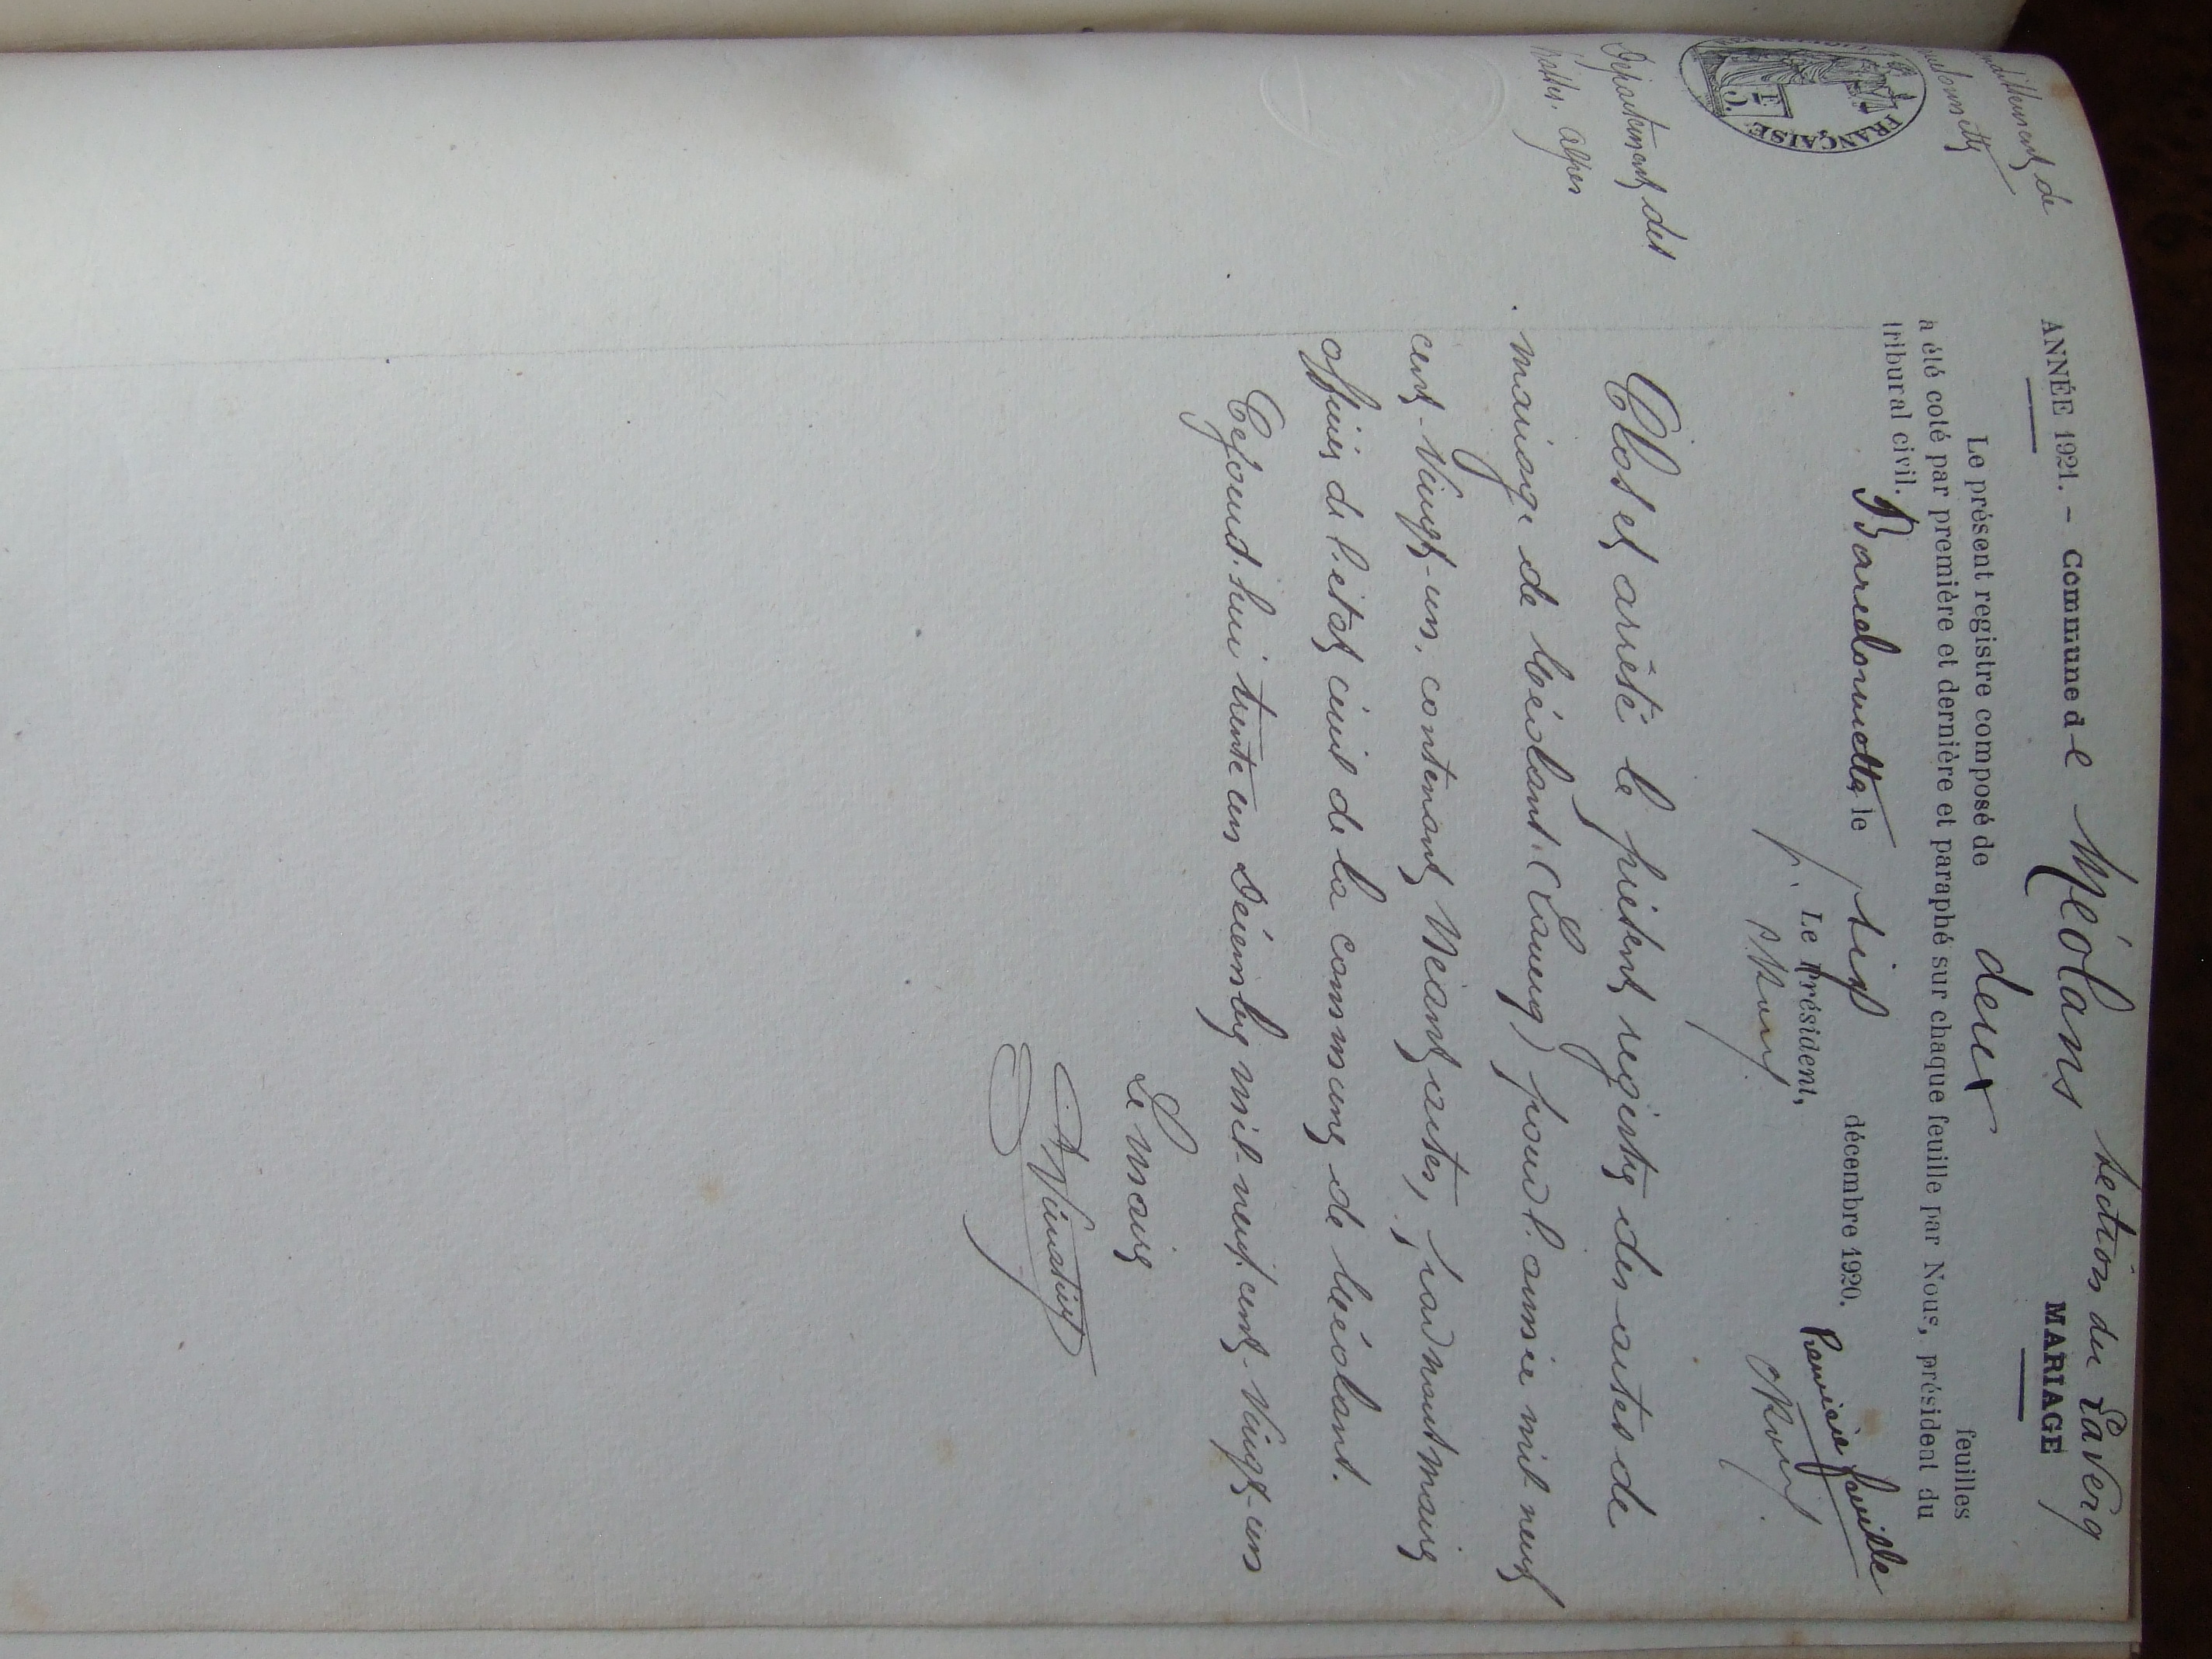 ANNÉE 1921. – Commune de Méolans section du Laverq
MARIAGE
Le présent registre composé de deux feuilles
a été coté par première et dernière et paraphé sur chaque feuille par Nous, président du
tribural civil.
Barcelonnette le sept décembre 1920.
p. Le Président,
Première feuille
de
Département des
Basses. Alpes
FRANÇAISE
Clos et arrêté le présent registre des actes de
mariage de Méolans (Laverq) pour l'année mil neuf
cent-vingt-un, contenant Néant actes, par nous maire
officier de l'état civil de la commune de Méolans.
Cejourd'hui trente un Décembre mil neuf cent-vingt-un
Le maire